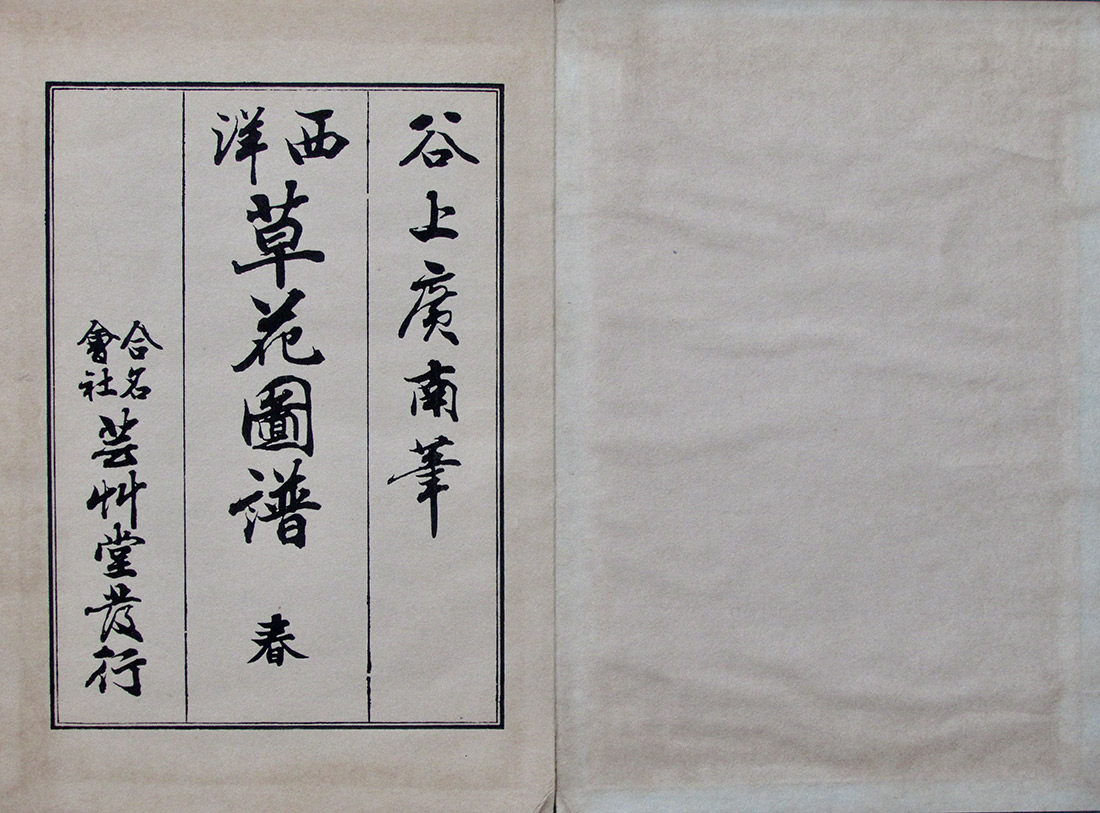 谷上廣南筆
西洋草花圖譜 春
合名會社芸艸堂發行